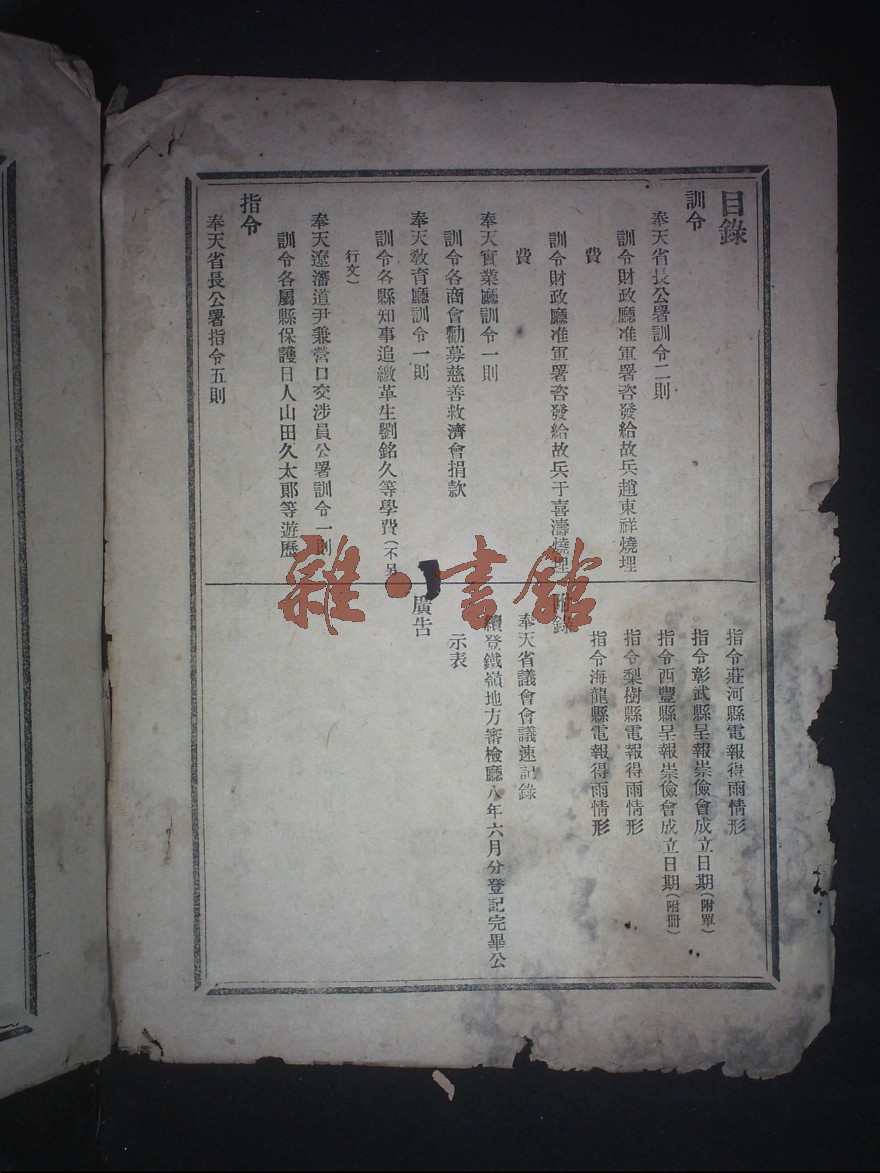 目錄
訓令
奉天省長公署訓令二則
訓令財政廳准軍署咨發給故兵趙東祥燒埋
費
訓令財政廳准軍署咨發給故兵于喜濤燒埋
費
奉天實業廳訓令一則
訓令各商會勸募慈善救濟會捐款
奉天教育廳訓令一則
訓令各縣知事追繳革生劉銘久等學費(不另
行文)
奉天遼瀋道尹兼營口交涉員公署訓令一則
訓令各屬縣保護日人山田久太郎等遊歷
指令
奉天省長公署指令五則
指令莊河縣電報得雨情形
指令彰武縣呈報崇儉會成立日期(附單)
指令西豐縣呈報崇儉會成立日期(附册)
指令梨樹縣電報得雨情形
指令海龍縣電報得雨情形
附錄
奉天省議會會議速記錄
續登鐵嶺地方審檢廳八年六月分登記完畢公
示表
廣告
雜·書館